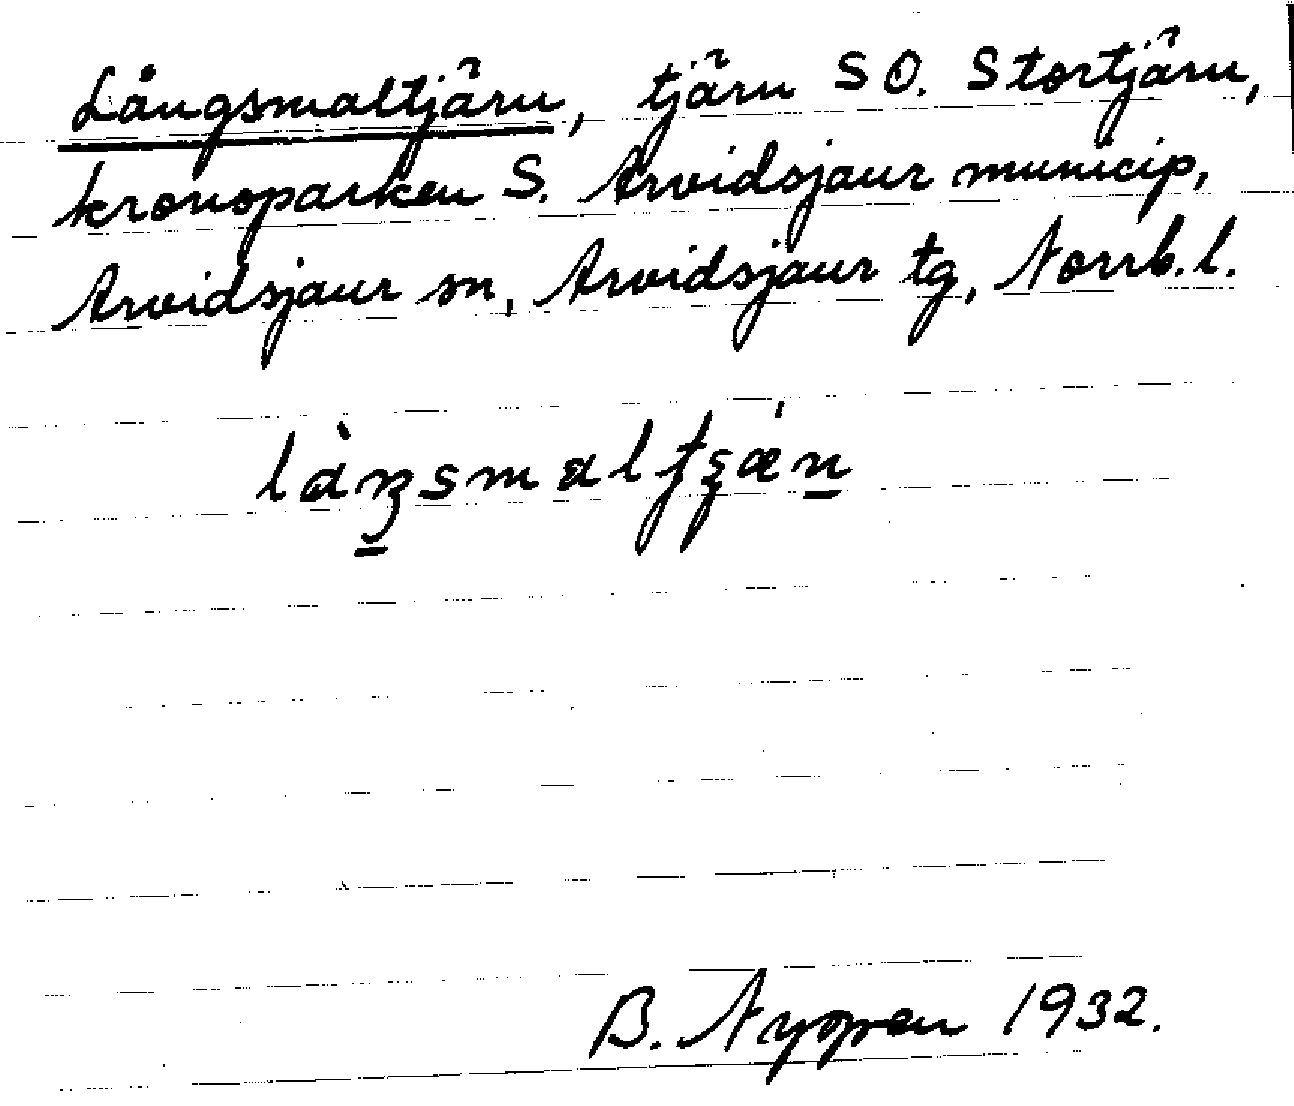 Långsmaltjärn, tjärn SO. Stortjärn,
kronoparken S. Arvidsjaur municip,
Arvidsjaur sn, Arvidsjaur tg, Norrb. l.
B. Nygren 1932.